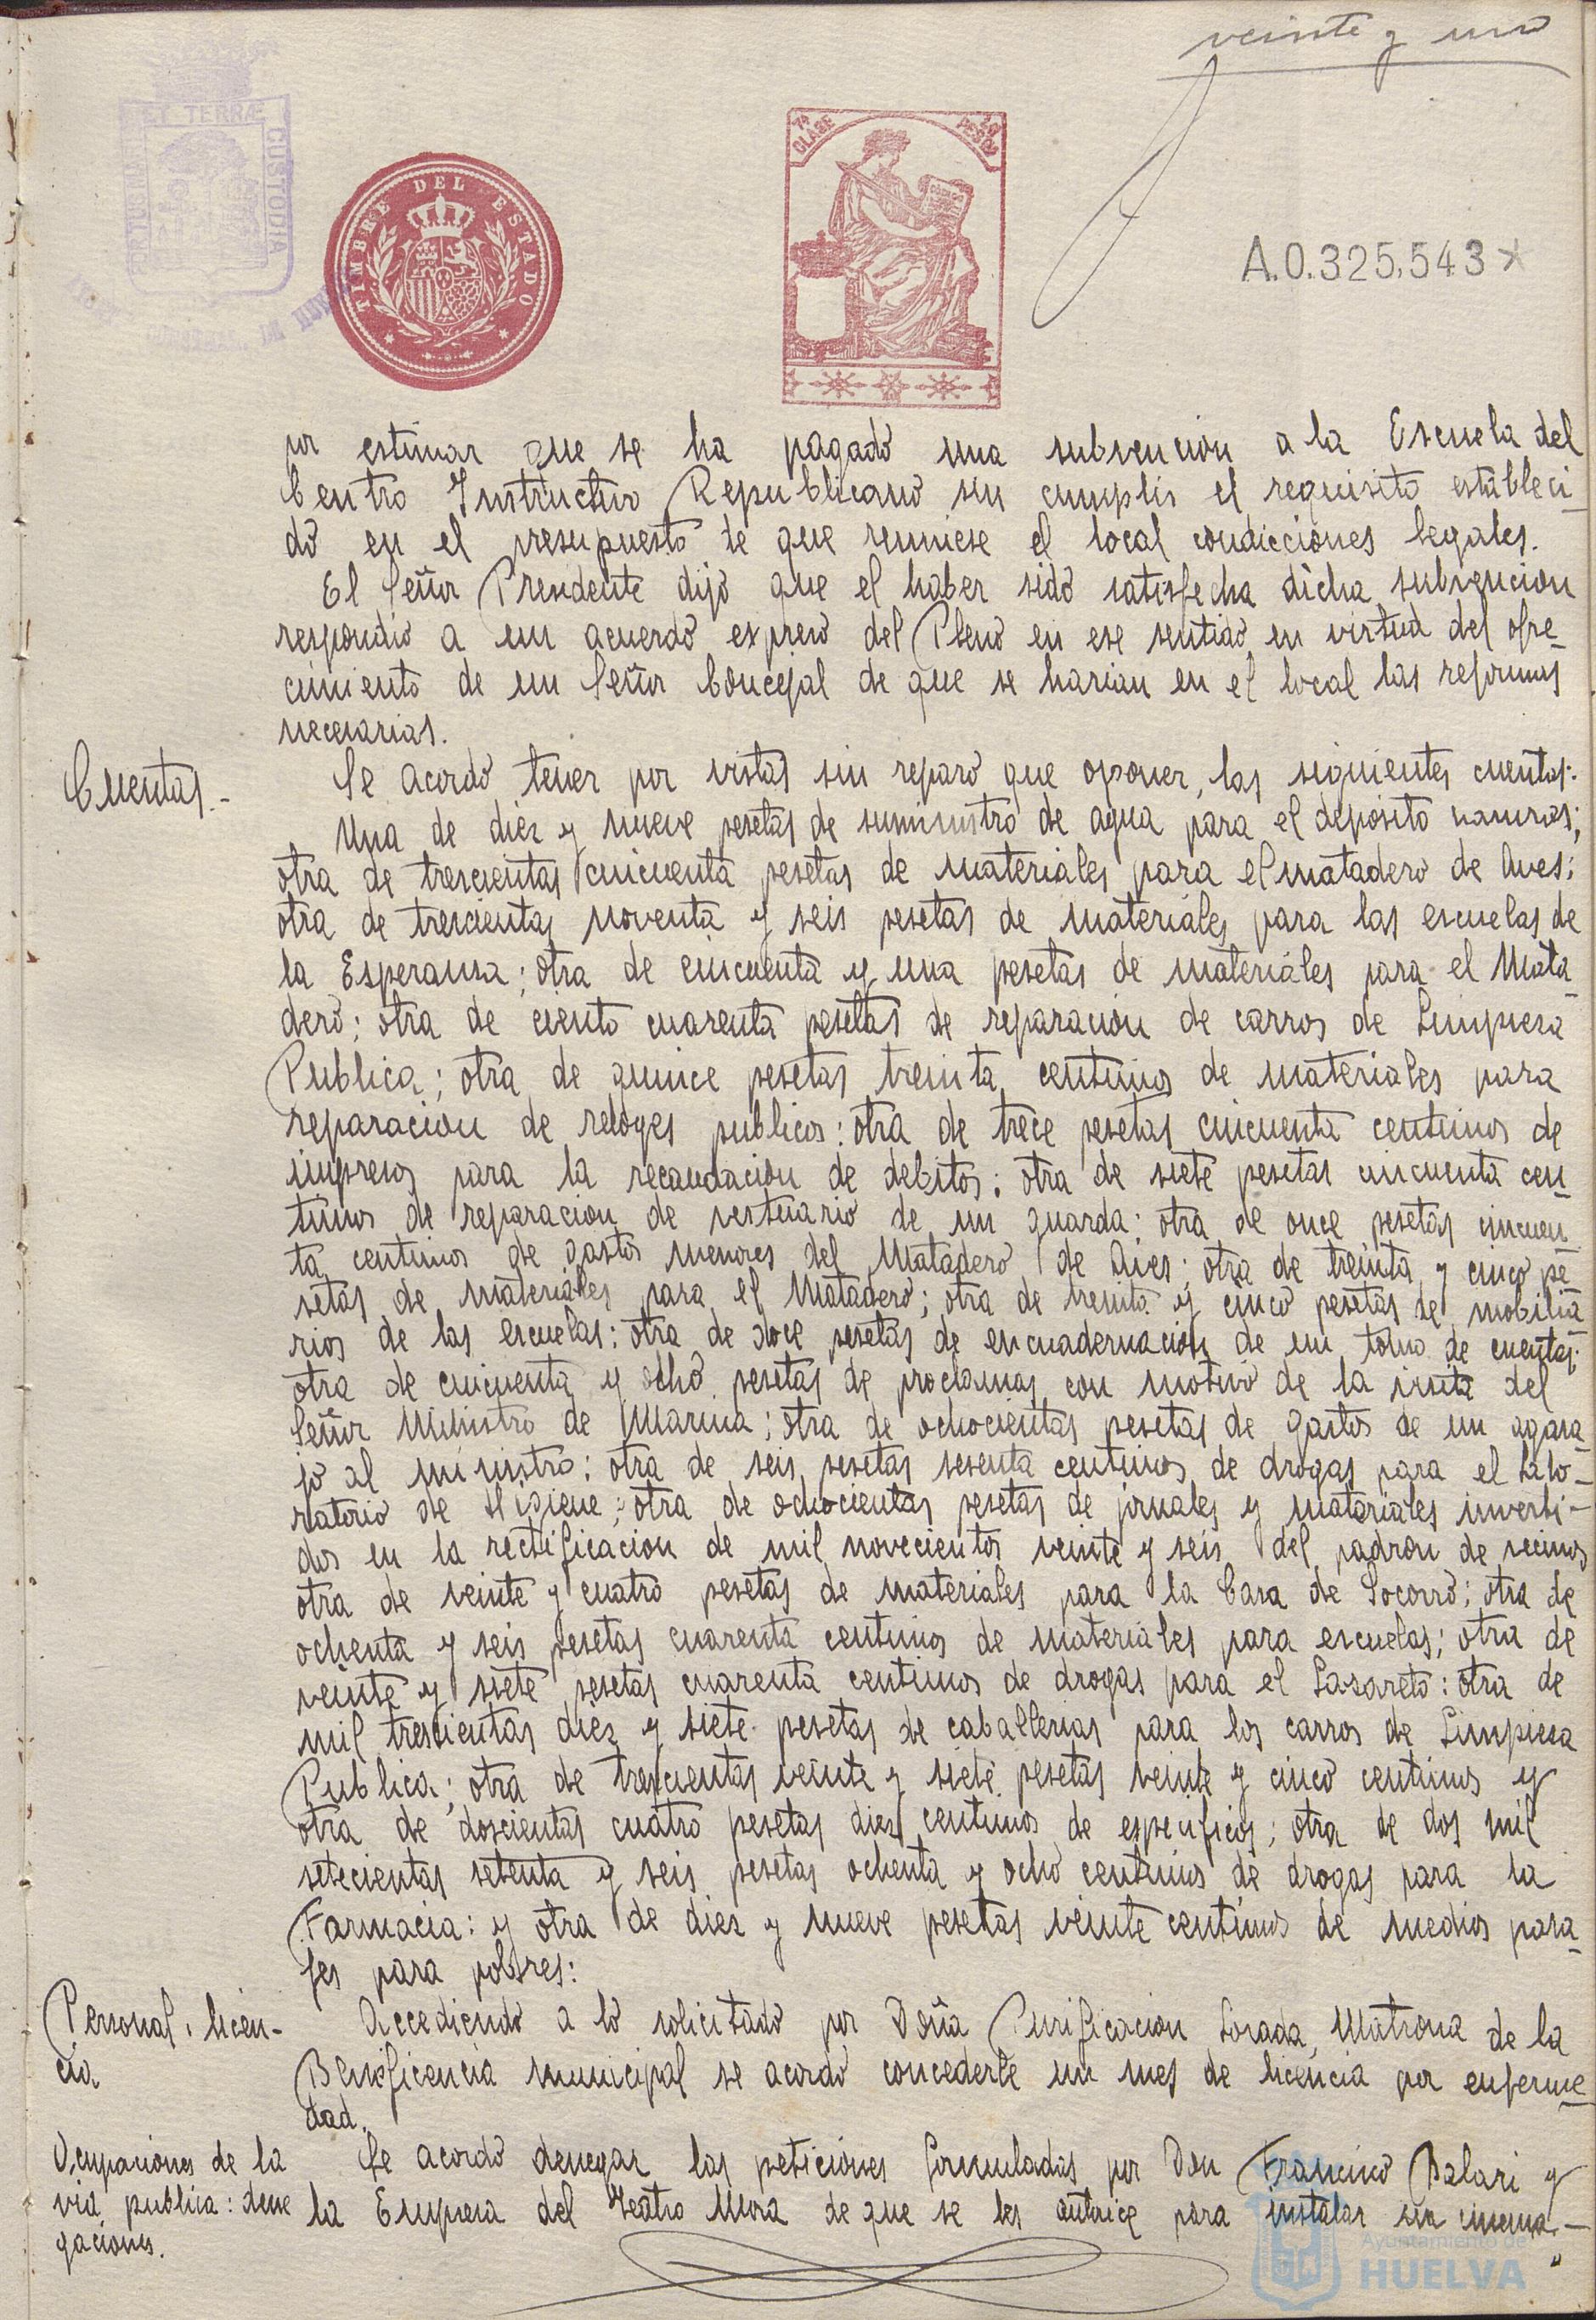 veinte y uno
ET TERRÆ
CUSTODIA
PORTUS MARIS
TIMBRE DEL ESTADO
7ª CLASE
A.0.325.543
por estimar que se ha pagado una subvencion a la Escuela del
Centro Instructivo Republicano sin cumplir el requisito estableci-
do en el presupuesto de que reuniese el local condicciones legales.
El Señor Presidente dijo que el haber sido satisfecha dicha subvencion
respondio a un acuerdo expreso del Pleno en ese sentido en virtud del ofre-
cimiento de un Señor Concejal de que se harian en el local las reformas
necesarias.
Cuentas.-
Se acordo tener por vistas sin reparo que oponer, las siguientes cuentas:
Una de diez y nueve pesetas de suministro de agua para el deposito
otra de trescientas cincuenta pesetas de materiales para el matadero de Aves;
otra de trescientas noventa y seis pesetas de materiales para las escuelas de
la Esperanza; otra de cincuenta y una pesetas de materiales para el Mata-
dero; otra de ciento cuarenta pesetas de reparacion de carros de Limpieza
Publica; otra de quince pesetas treinta centimos de materiales para
reparacion de reloges publicos: otra de trece pesetas cincuenta centimos de
impresos para la recaudacion de debitos; otra de siete pesetas cincuenta cen-
timos de reparacion de vestuario de un guarda: otra de once pesetas cincuen-
ta centimos de gastos menores del Matadero de Aves; otra de treinta y cinco pe-
setas de materiales para el Matadero; otra de treinta y cinco pesetas de mobilia-
rios de las escuelas: otra de doce pesetas de encuadernacion de un tomo de cuentas:
otra de cincuenta y ocho pesetas de proclamas con motivo de la visita del
Señor Ministro de Marina; otra de ochocientas pesetas de gastos de un agasa-
jo al ministro: otra de seis pesetas sesenta centimos de drogas para el Labo-
ratorio de Higiene; otra de ochocientas pesetas de jornales y materiales inverti-
dos en la rectificacion de mil novecientos veinte y seis del padron de vecinos
otra de veinte y cuatro pesetas de materiales para la Casa de Socorro; otra de
ochenta y seis pesetas cuarenta centimos de materiales para escuelas; otra de
veinte y siete pesetas cuarenta centimos de drogas para el Lazareto: otra de
mil trescientas diez y siete pesetas de caballerias para los carros de Limpieza
Publica; otra de trescientas veinte y siete pesetas veinte y cinco centimos y
otra de doscientas cuatro pesetas diez centimos de especificos; otra de dos mil
setecientas setenta y seis pesetas ochenta y ocho centimos de drogas para la
Farmacia: y otra de diez y nueve pesetas veinte centimos de medios pasa-
jes para pobres:
Personal: licen-
cia
Accediendo a lo solicitado por Doña Purificacion Losada, Matrona de la
Beneficencia municipal se acordo concederle un mes de licencia por enferme-
dad.
Ocupaciones de la
via publica: dene
gaciones.
Se acordo denegar las peticiones formuladas por Don Francisco Balari y
la Empresa del Teatro Mora de que se les autorice para instalar un cinema-
Ayuntamiento de
HUELVA